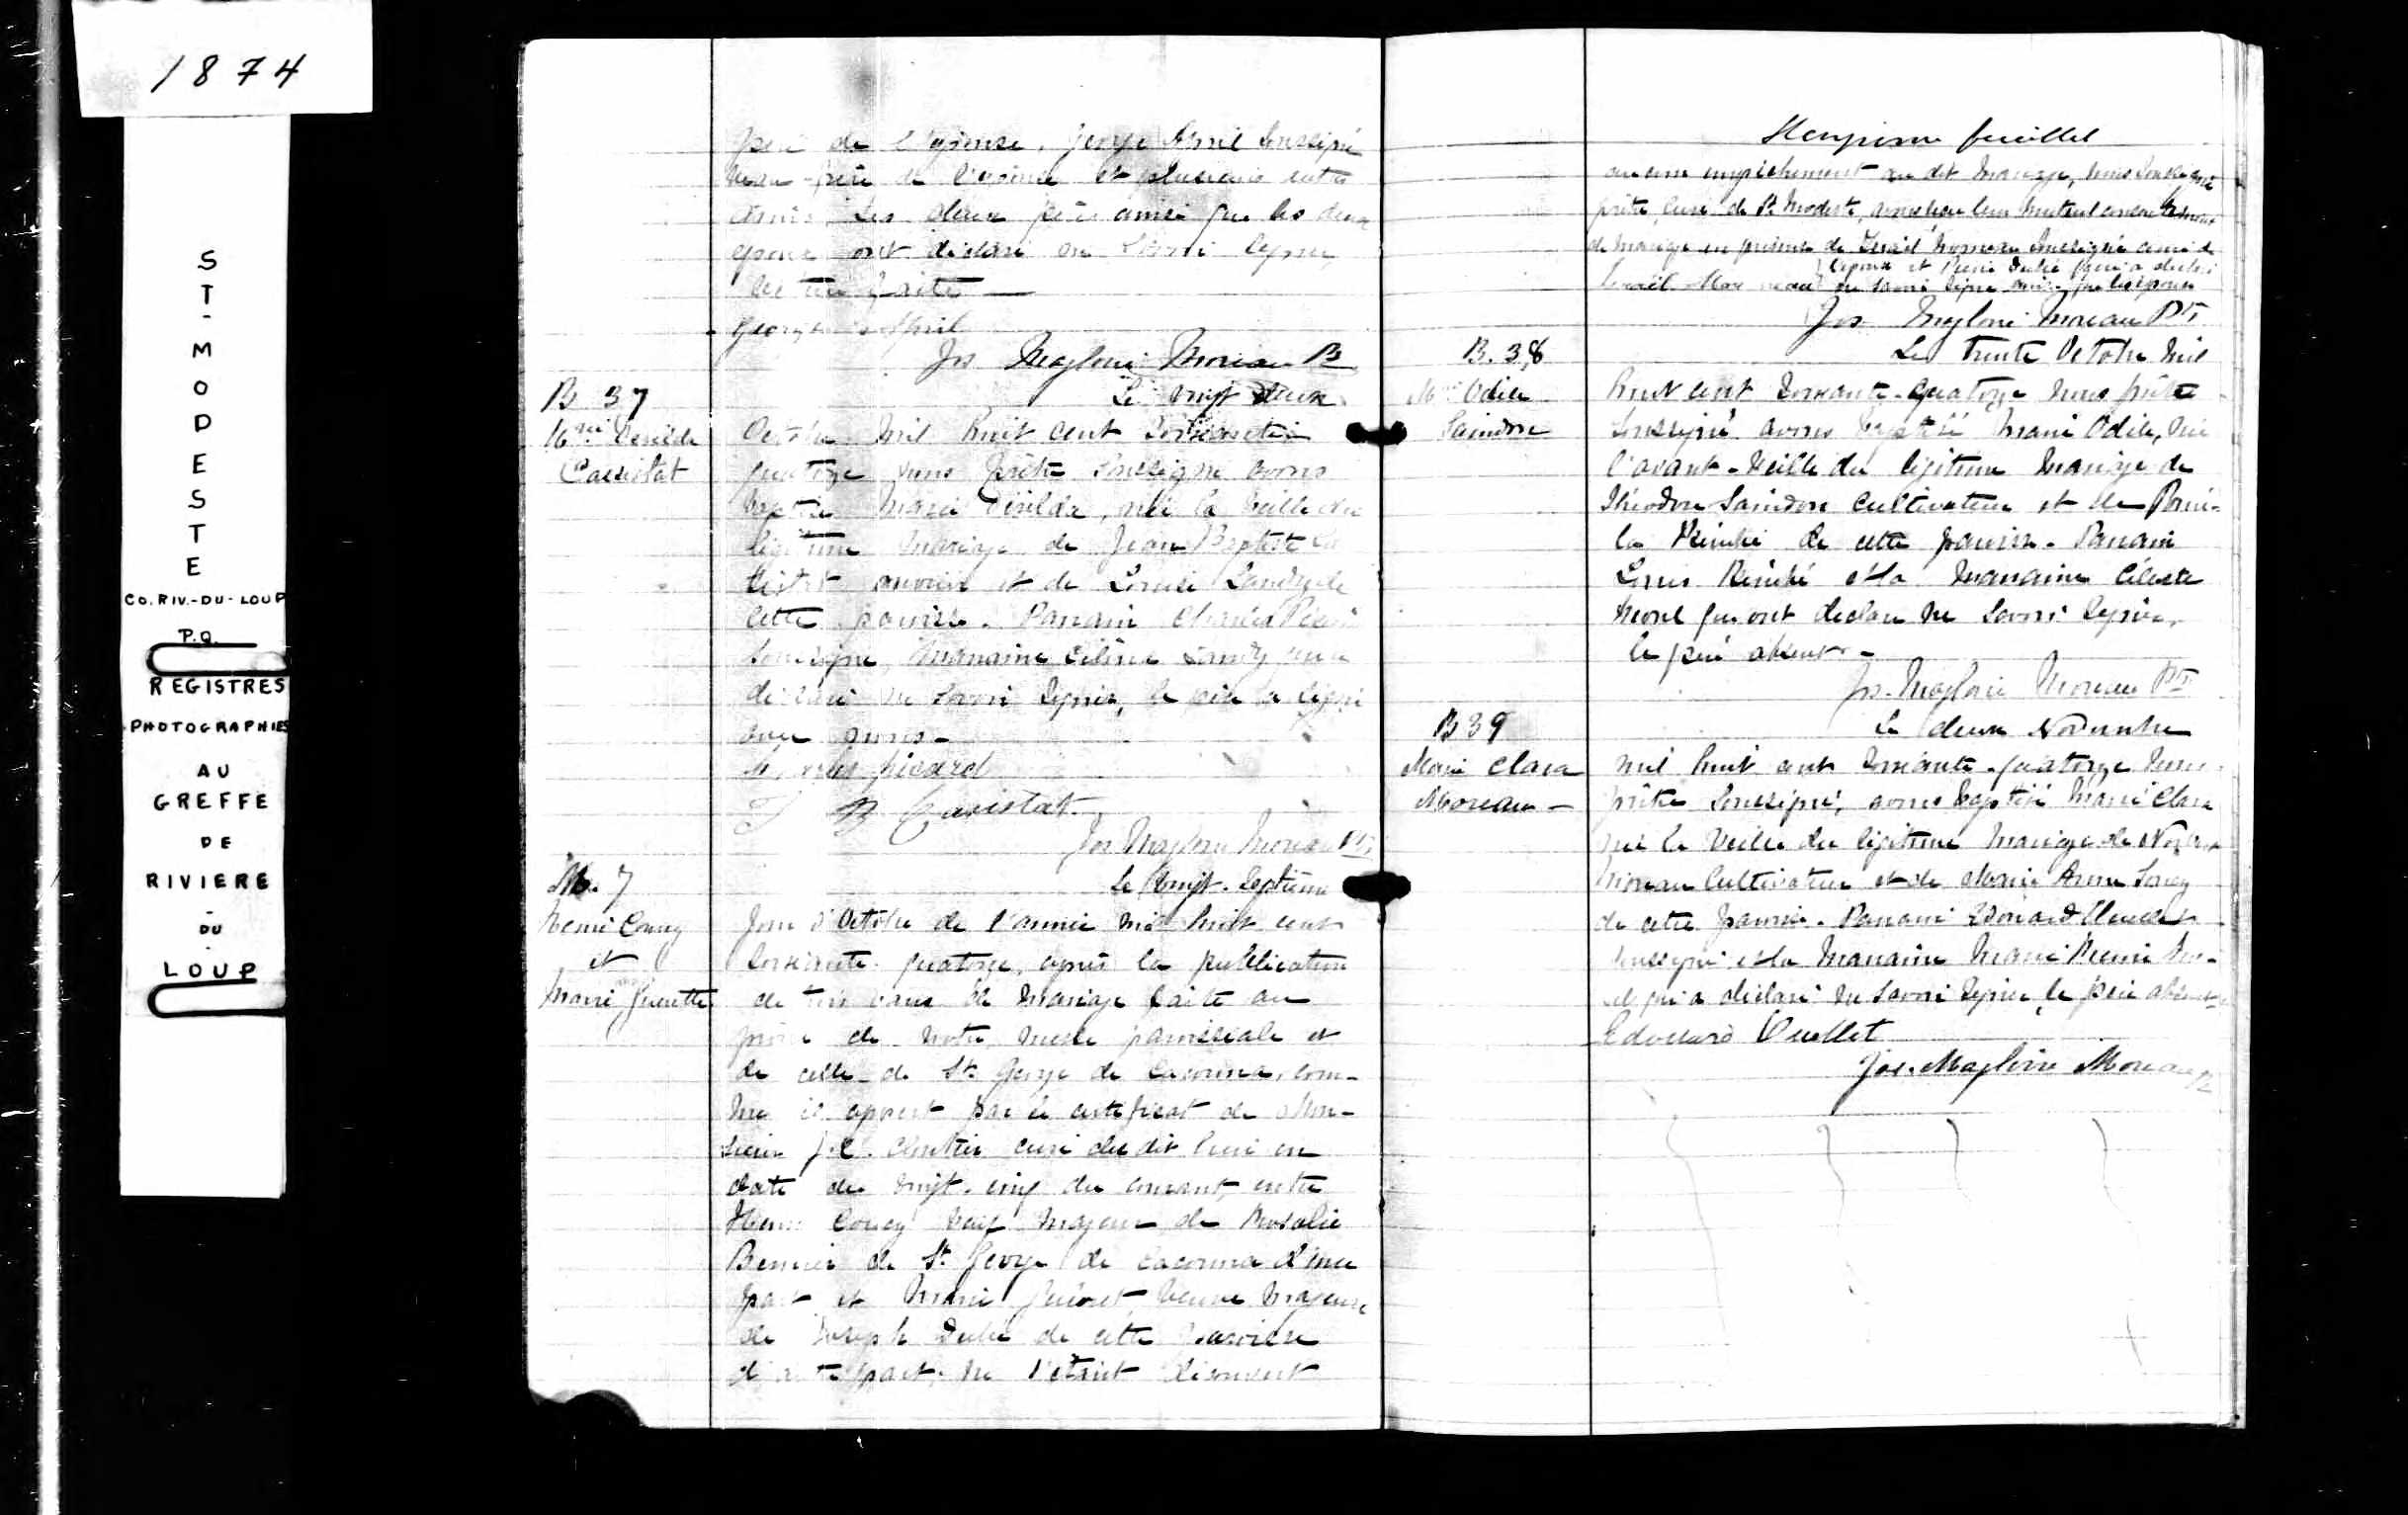 1874
ST-MODESTE
CO. RIV.-DU-LOUP
P.Q.
REGISTRES
PHOTOGRAPHIES
AU
GREFFE
DE
RIVIERE
-
DU
-
LOUP
père de l'épouse, George April soussigné
beau-frère de l'épouse et plusieurs autres
amis. Les deux pères ainsi que les deux
époux ont déclaré ne savoir signer,
lecture faite
George April
Jos Magloire Moreau Ptre
B 37
Marie
Cassistat
Le vingt deux
Octobre mil huit cent soixante
quatorze nous prêtre soussigné avons
baptisé Marie, née la veille du
légitime mariage de Jean Baptiste Ca
sistat et de Louise Landry de
cette paroisse. Parrain Charles Picard
soussigné, marraine Landry qui a
déclaré ne savoir signer, le père a signé
avec nous.
Charles picard
J B Cassistat
Jos Magloire Moreau Ptre
M. 7
Henri Coucy
et
Marie Guerette
Le vingt-septième
jour d'Octobre de l'année mil huit cent
soixante-quatorze, après la publication
de trois bans de mariage faite au
prône de notre messe paroissiale et
de celle de St George de Cacouna, com-
me il appert par le certificat de Mon-
sieur J.C. Cloutier curé du dit lieu en
date du vingt-cinq du courant, entre
Henri Coucy veuf majeur de Rosalie
Bernier de St George de Cacouna d'une
part et Marie Guéret, veuve majeure
de Joseph Dubé de cette paroisse
d'autre part; ne s'étant découvert
feuillet
aucun empêchement au dit mariage, nous soussigné
prêtre, curé de St Modeste, avons reçu leur mutuel consentement
de mariage en présence de Israël Morneau soussigné ami de
l'époux et Pierre Dubé qui a déclaré
Israël Morneau ne savoir signer ainsi que les époux
Jos Magloire Moreau Ptre
B. 38
Mie Odile
Saindon
Le trente Octobre mil
huit cent soixante-quatorze nous prêtre
soussigné avons baptisé Marie Odile, née
l'avant-veille du légitime mariage de
Théodore Saindon cultivateur et de
de cette paroisse. Parrain
Louis et la marraine Céleste
Morel qui ont déclaré ne savoir signer,
le père absent.
Jos. Magloire Moreau Ptre
B 39
Marie Clara
Moreau
Le deux Novembre
mil huit cent soixante-quatorze nous
prêtre soussigné, avons baptisé Marie Clara
née la veille du légitime mariage de
Moreau cultivateur et de Marie Anne Soucy
de cette paroisse. Parrain Edouard Ouellet
soussigné et la marraine Marie Mo-
rel qui a déclaré ne savoir signer, le père absent
Edouard Ouellet
Jos. Magloire Moreau Ptre